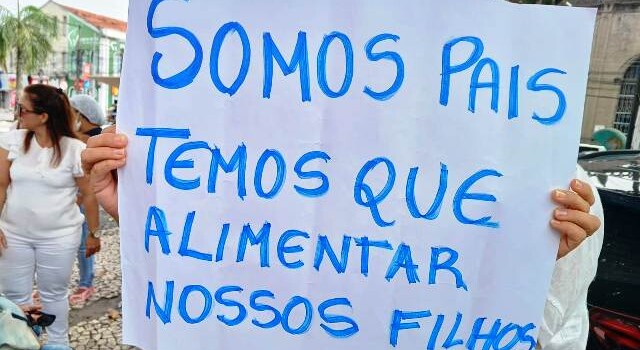 SOMOS PAIS
TEMOS QUE
ALIMENTAR
NOSSOS FILHOS